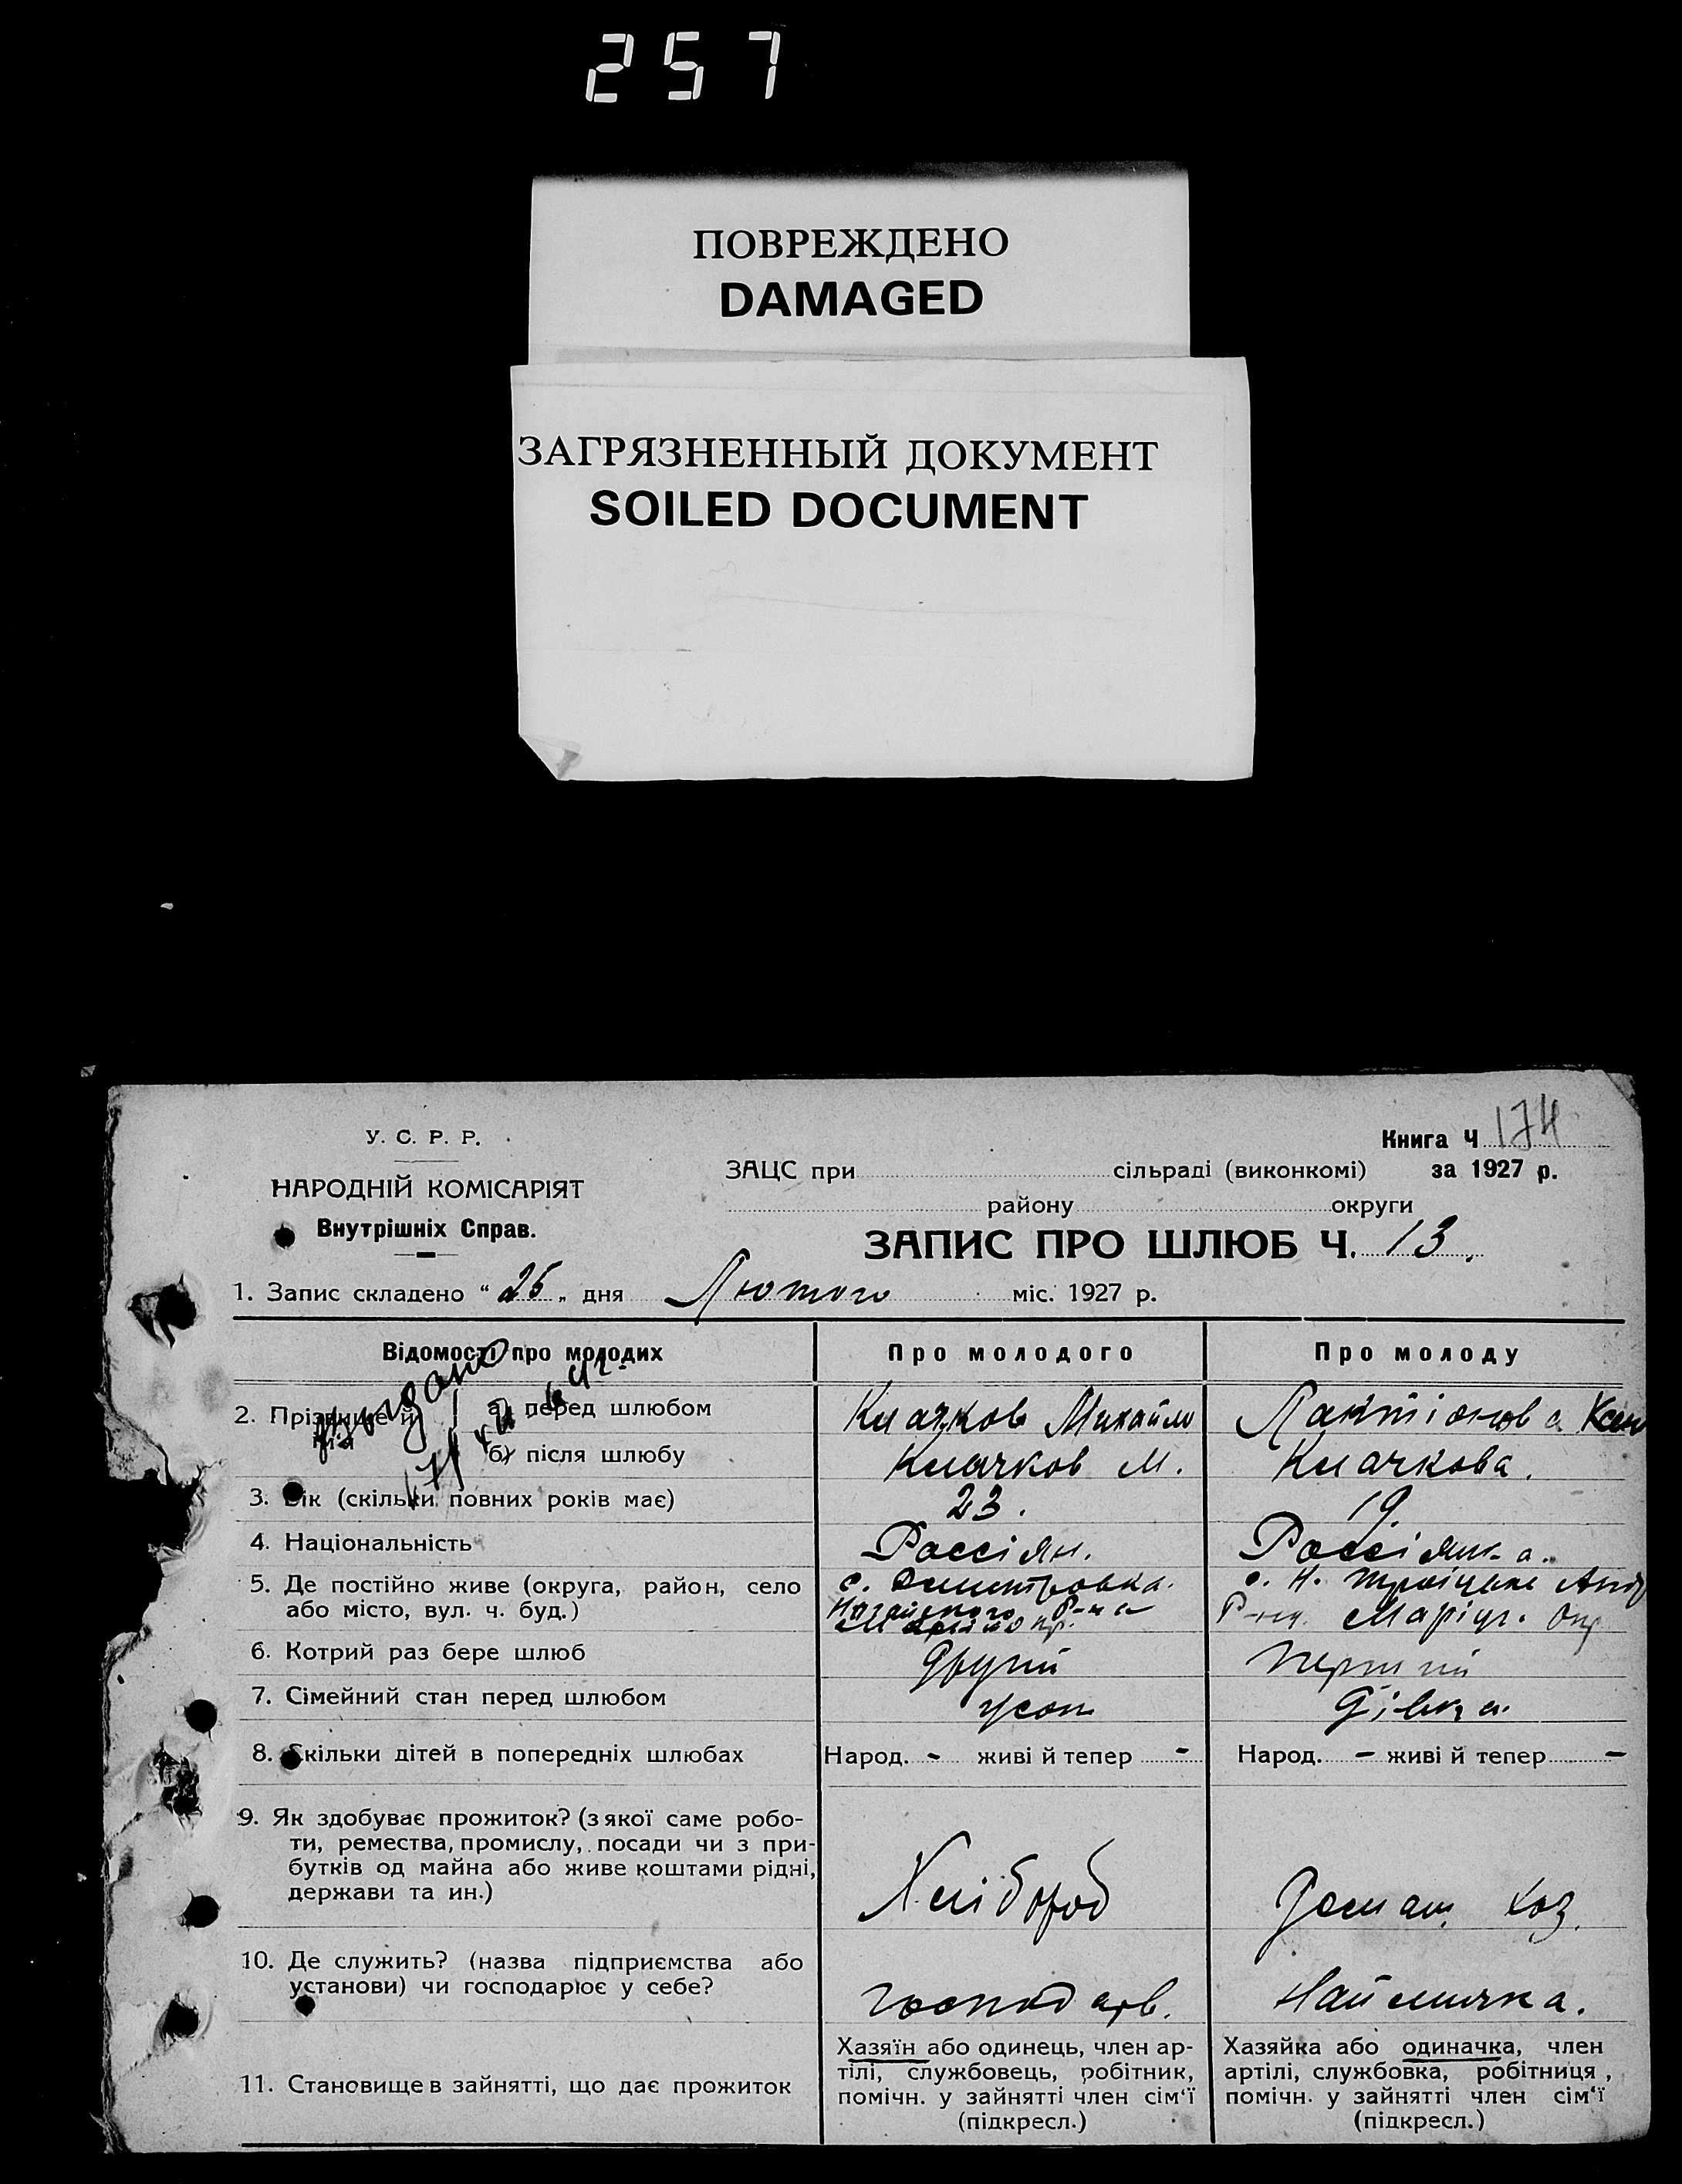 257
ПОВРЕЖДЕНО
DAMAGED
ЗАГРЯЗНЕННЫЙ ДОКУМЕНТ
SOILED DOCUMENT
У. С. Р. Р.
НАРОДНІЙ КОМІСАРІЯТ
Внутрішніх Справ.
Книга Ч 174
ЗАЦС при сільраді (виконкомі) за 1927 р.
району округи
ЗАПИС ПРО ШЛЮБ Ч. 13.
1. Запис складено " 25 " дня Лютого міс. 1927 р.
Відомості про молодих Про молодого Про молоду
2. Прізвище й ім'я а) перед шлюбом Клачков Михайло Лактіонова Ксен
б) після шлюбу Клачков М. Клачкова.
3. Вік (скільки повних років має) 23. 19
4. Національність Россіян. Россіянка.
5. Де постійно живе (округа, район, село с. Дмитровка. с. Н. Троіцьке
або місто, вул. ч. буд.) Р-на Р-ну. Маріуп. Окр
6. Котрий раз бере шлюб Другий Перший
7. Сімейний стан перед шлюбом Дівка
8. Скільки дітей в попередніх шлюбах Народ. - живі й тепер - Народ. - живі й тепер -
9. Як здобуває прожиток? (з якої саме робо-
ти, ремества, промислу, посади чи з при-
бутків од майна або живе коштами рідні,
держави та ин.) Хлібороб Домаш. хоз.
10. Де служить? (назва підприємства або
установи) чи господарює у себе? господарв. Наймичка.
11. Становище в зайнятті, що дає прожиток
Хазяїн або одинець, член ар-
тілі, службовець, робітник,
помічн. у зайнятті член сім'ї
(підкресл.)
Хазяйка або одиначка, член
артілі, службовка, робітниця,
помічн. у зайнятті член сім'ї
(підкресл.)